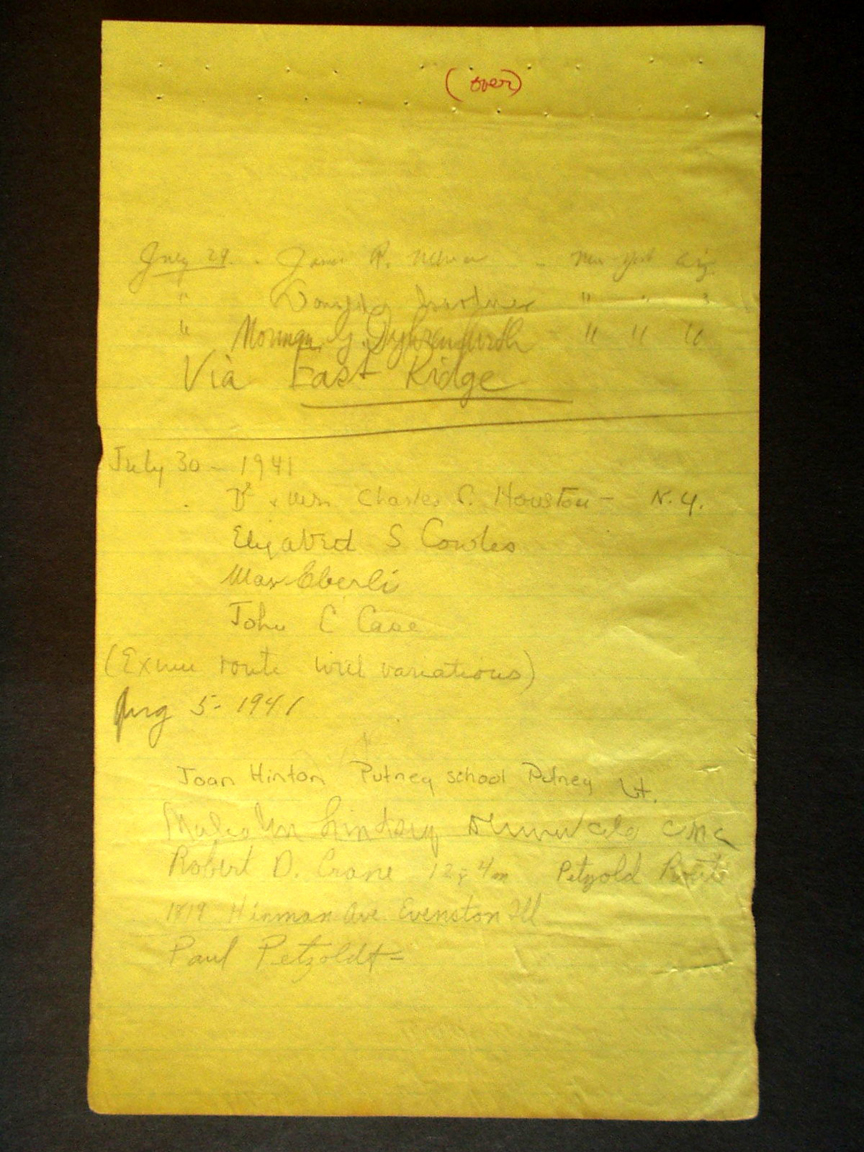 (over)
July 29. - James R. - New York City
" Donald " " "
" Norman G. Dyhrenfurth - " " "
Via East Ridge
July 30 - 1941
Dr & Mrs. Charles S. Houston - N.Y.
Elizabeth S Cowles
Max Eberli
John C Case
(Exum route with variations)
Aug 5 - 1941
Joan Hinton Putney school Putney Vt.
Malcolm Lindsey CMC
Robert D. Crane Petzold Route
1819 Hinman Ave Evenston Ill
Paul Petzoldt -